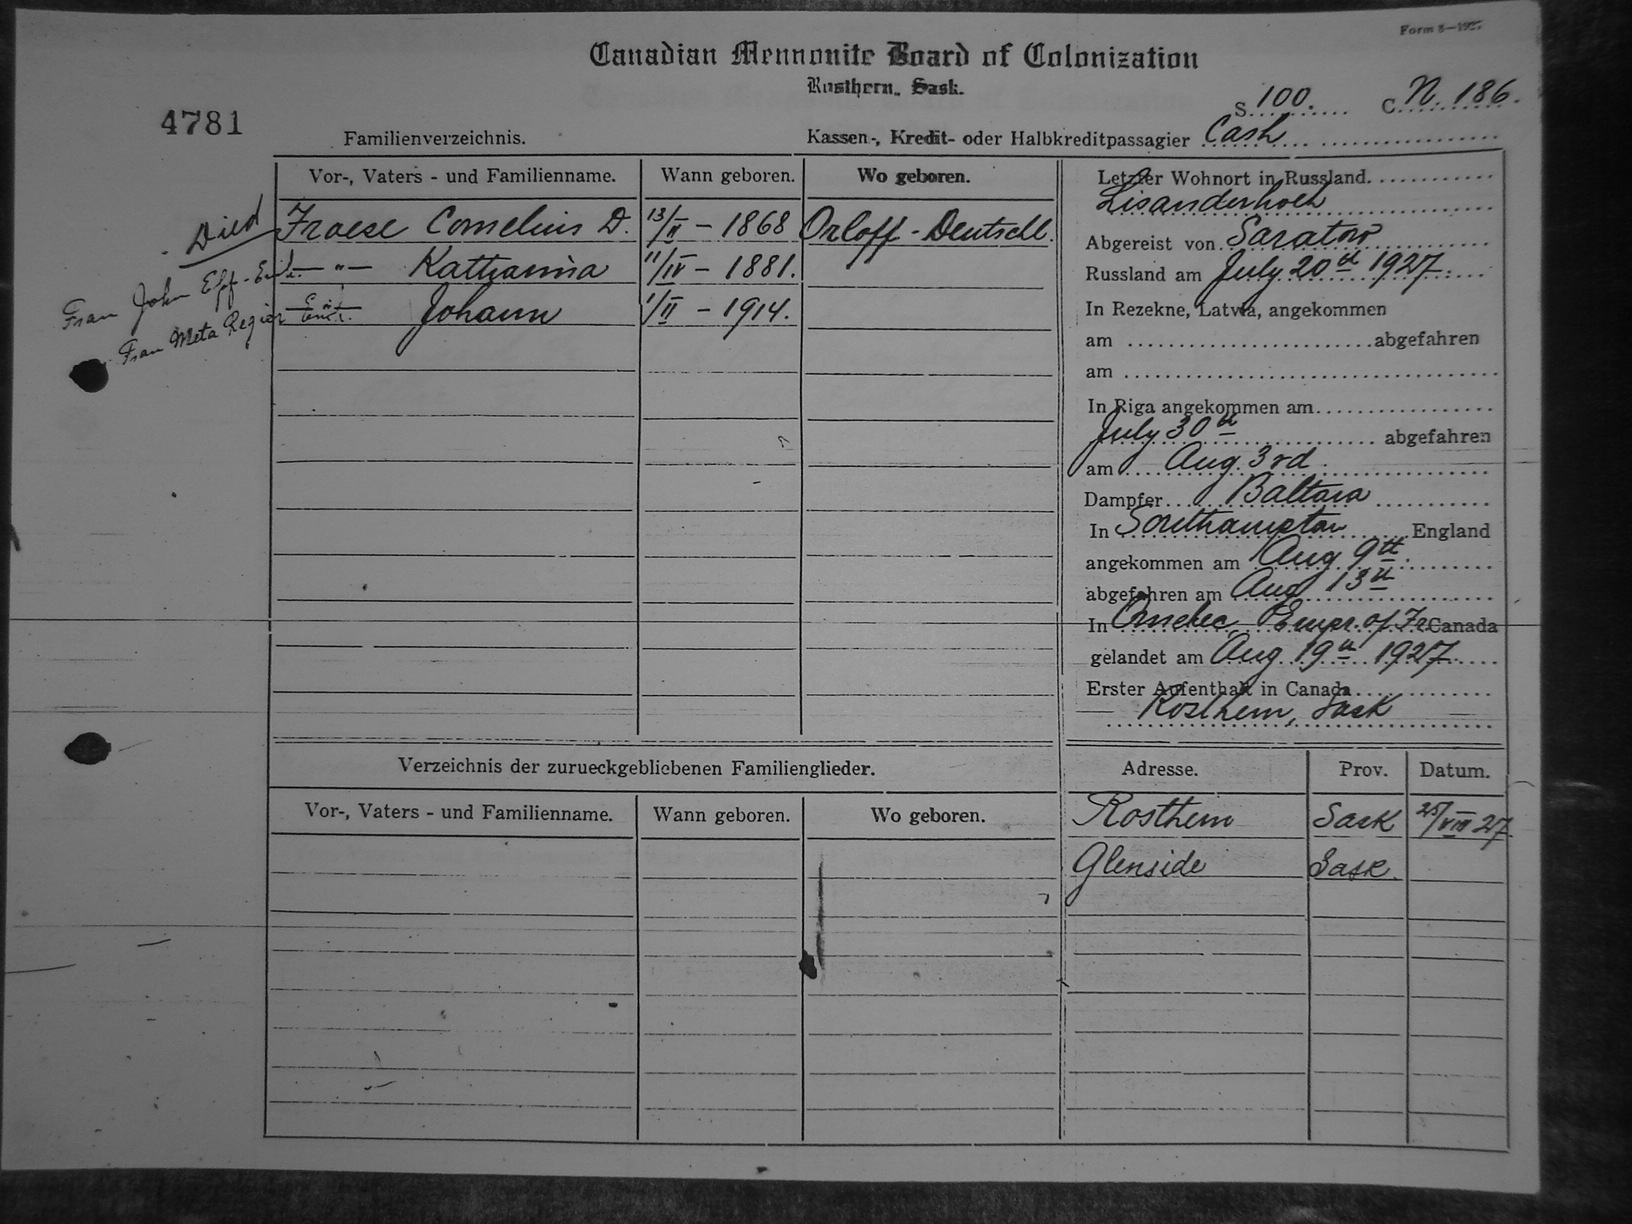 Form 5—1927
Canadian Mennonite Board of Colonization
Rosthern, Sask.
4781
S. 100. C. N. 186.
Familienverzeichnis.
Kassen-, Kredit- oder Halbkreditpassagier Cash
Vor-, Vaters - und Familienname. Wann geboren. Wo geboren.
Died Froese Cornelius D. 13/II – 1868 Orloff - Deutschl.
Frau John Epp - —"— Katharina 11/IV – 1881.
Frau Meta Regier Johann 1/II – 1914.
Letzter Wohnort in Russland.
Lisanderhoeh
Abgereist von Saratow
Russland am July 20th 1927.
In Rezekne, Latvia, angekommen
am abgefahren
am
In Riga angekommen am
July 30th abgefahren
am Aug. 3rd.
Dampfer Baltara
In Southampton England
angekommen am Aug 9th
abgefahren am Aug 13th
In Quebec Empr. of Fr Canada
gelandet am Aug 19th 1927
Erster Aufenthalt in Canada
Rosthern, Sask
Verzeichnis der zurueckgebliebenen Familienglieder.
Vor-, Vaters - und Familienname. Wann geboren. Wo geboren.
Adresse. Prov. Datum.
Rosthern Sask 25/VIII 27.
Glenside Sask.